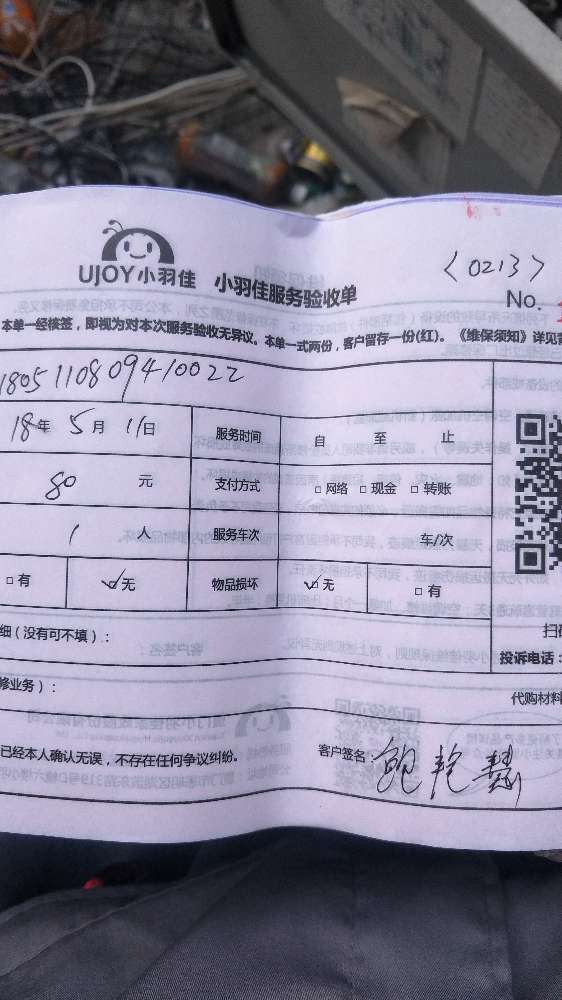 UJOY小羽佳 小羽佳服务验收单
〈0213〉
No.
本单一经核签，即视为对本次服务验收无异议。本单一式两份，客户留存一份(红)。《维保须知》详见背
1805110809410022
18年 5月 11日 服务时间 自 至 止
80 元 支付方式 □网络 □现金 □转账
1 人 服务车次 车/次
□有 ☑无 物品损坏 ☑无 □有
细（没有可不填）：
扫码
投诉电话：
修业务）：
代购材料
已经本人确认无误，不存在任何争议纠纷。 客户签名：鲍艳慧